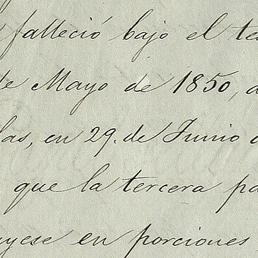 falleció bajo el te
de Mayo de 1850, a
las, en 29. de Junio
que la tercera pa
yese en porciones